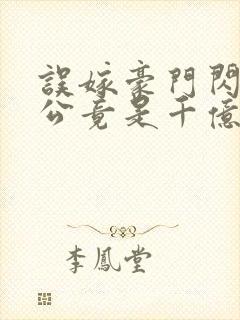 誤嫁豪門閃
公竟是千億
李鳳堂